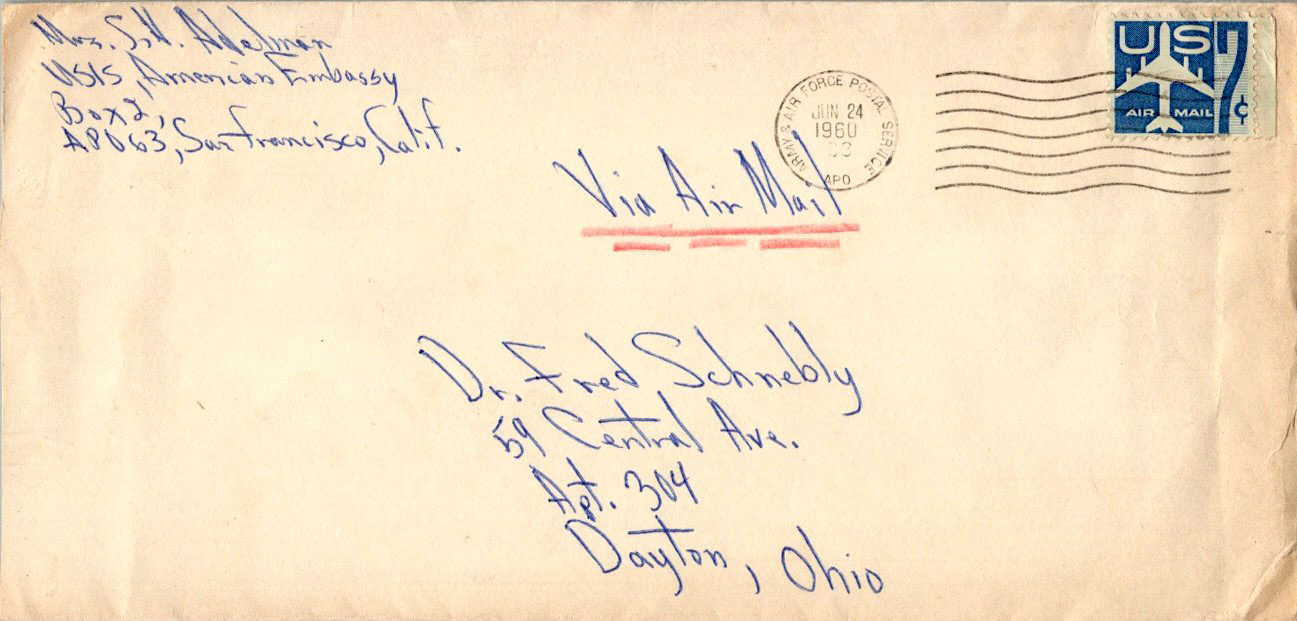 Mrs. S.H. Adelman
USIS, American Embassy
Box 2,
APO 63, San Francisco, Calif.
ARMY & AIR FORCE POSTAL SERVICE
JUN 24
1960
APO
US
7¢
AIR MAIL
Via Air Mail
Dr. Fred Schnebly
59 Central Ave.
Apt. 304
Dayton, Ohio